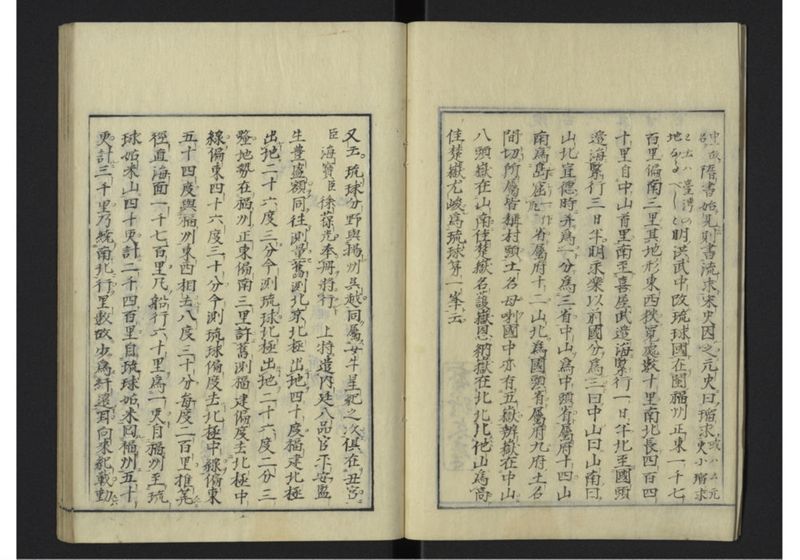 隋書始見則書流求宋史因之元史曰瑠求
明洪武中改琉球國在閩福州正東一千七
百里偏南三里其地形東西狹寬處數十里南北長四百四
十里自中山首里南至喜屋武邉海緊行一日半北至國頭
邉海緊行三日半明永樂以前國分為三曰中山曰山南曰
山北宣德時并為一分為三省中山為中頭省属府十四山
南為島窟省属府十二山北為國頭省属府九府土名
間切所属皆稱村頭土名母喇國中亦有五嶽辨嶽在中山
八頭嶽在山南佳楚嶽名護嶽恩納嶽在北北比他山為高
佳楚嶽尤峻為琉球第一峯云
又云琉球分野與揚州呉越同属女牛星紀之次俱在丑宮
臣海寶臣徐葆光奉冊將行上特遣内廷八品官平安監
生豊盛額同往測量舊測北京北極出地四十度福建北極
出地二十六度三分今測琉球北極出地二十六度二分三
釐地勢在福州正東偏南三里許舊測福建偏度去北極中
線偏東四十六度三十分今測琉球偏度去北極中線偏東
五十四度與福州東西相去八度三十分每度二百里推筭
徑直海面一千七百里凡船行六十里為一更自福州至琉
球姑米山四十更計二千四百里自琉球姑米囘福州五十
更計三千里乃繞南北行里數故少為紆遠耳向來紀載動